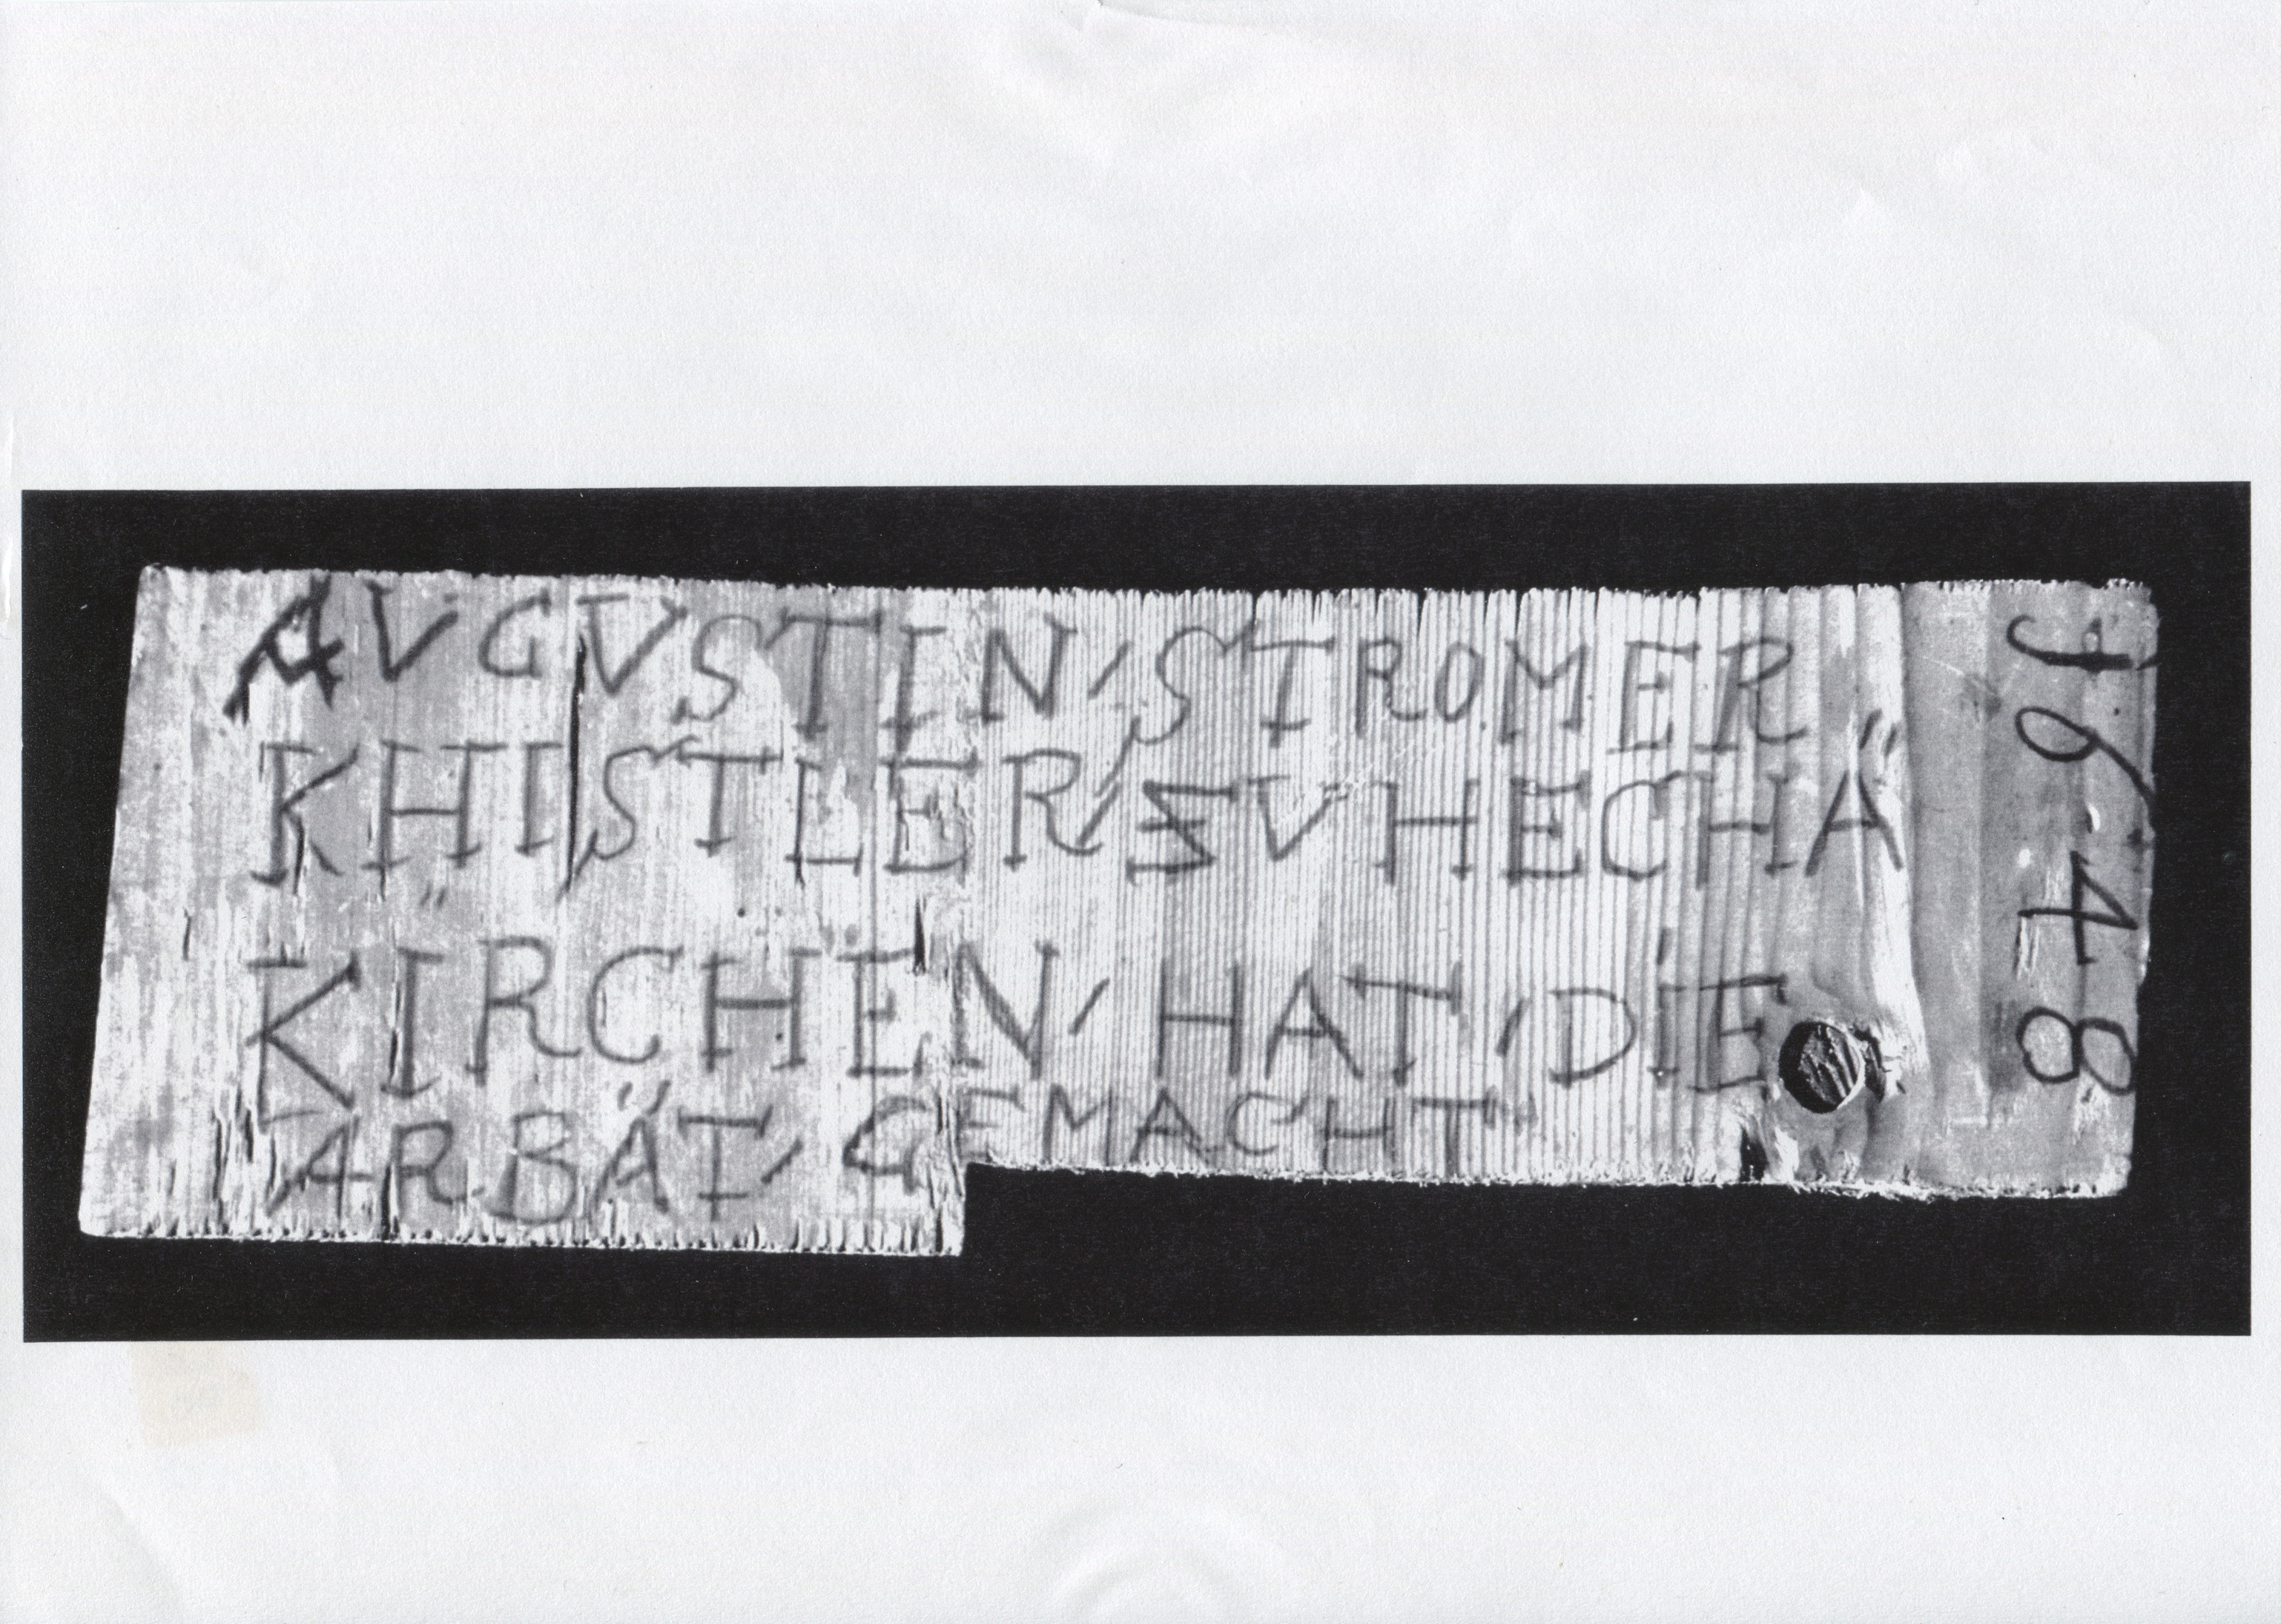 AVGVSTIN, STROMER
KHISTLER, ZVHECHÄ
KIRCHEN, HAT, DIE
ARBÄT, GEMACHT
1648